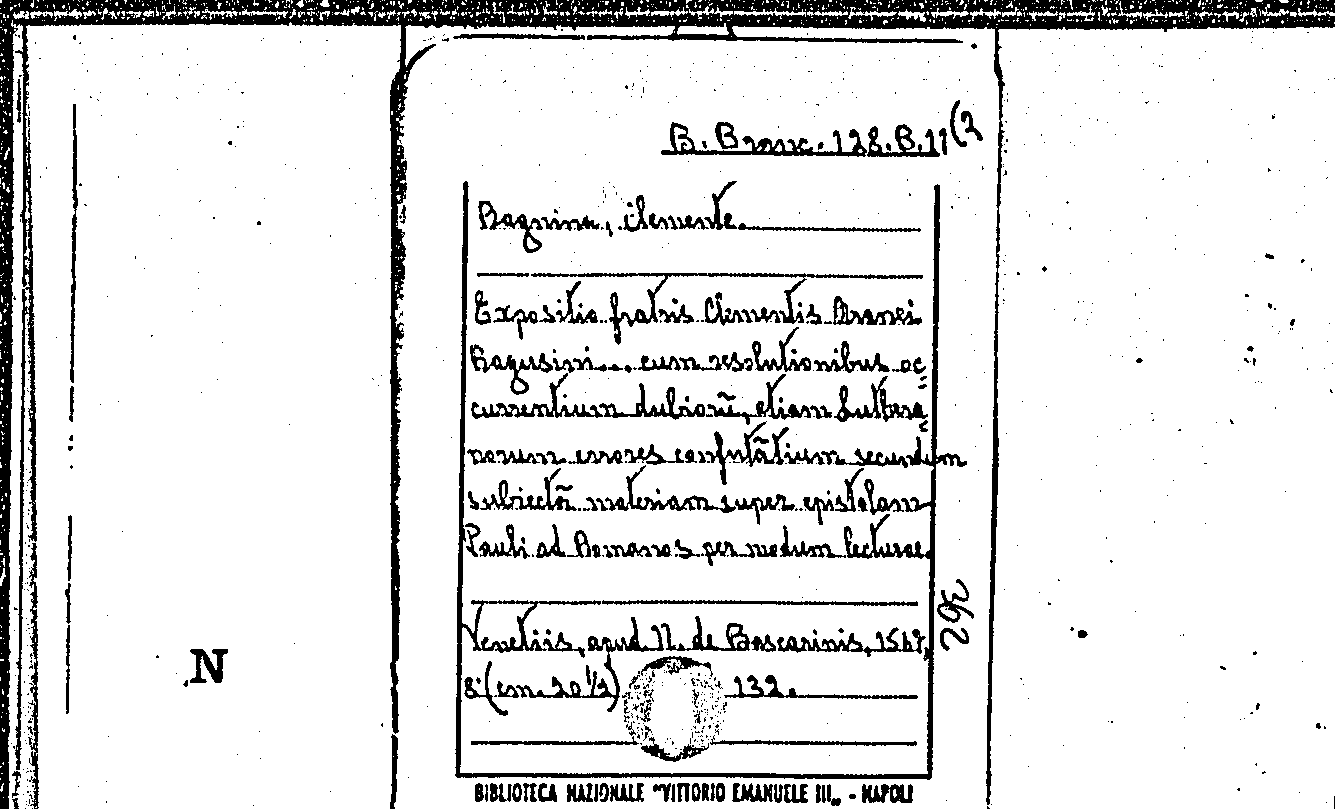 B. Branc. 128. B. 11(2
Ragnina, Clemente.
Expositio fratris Clementis Aranei
Ragusini... cum resolutionibus oc=
currentium dubiorũ, etiam Luthera=
norum errores confutãtium secundum
subiectã materiam super epistolam
Pauli ad Romanos per modum lecturae.
Venetiis, apud N. de Bascarinis, 1547,
8° (cm. 20 1/2) 132.
362
N
BIBLIOTECA NAZIONALE "VITTORIO EMANUELE III„ - NAPOLI